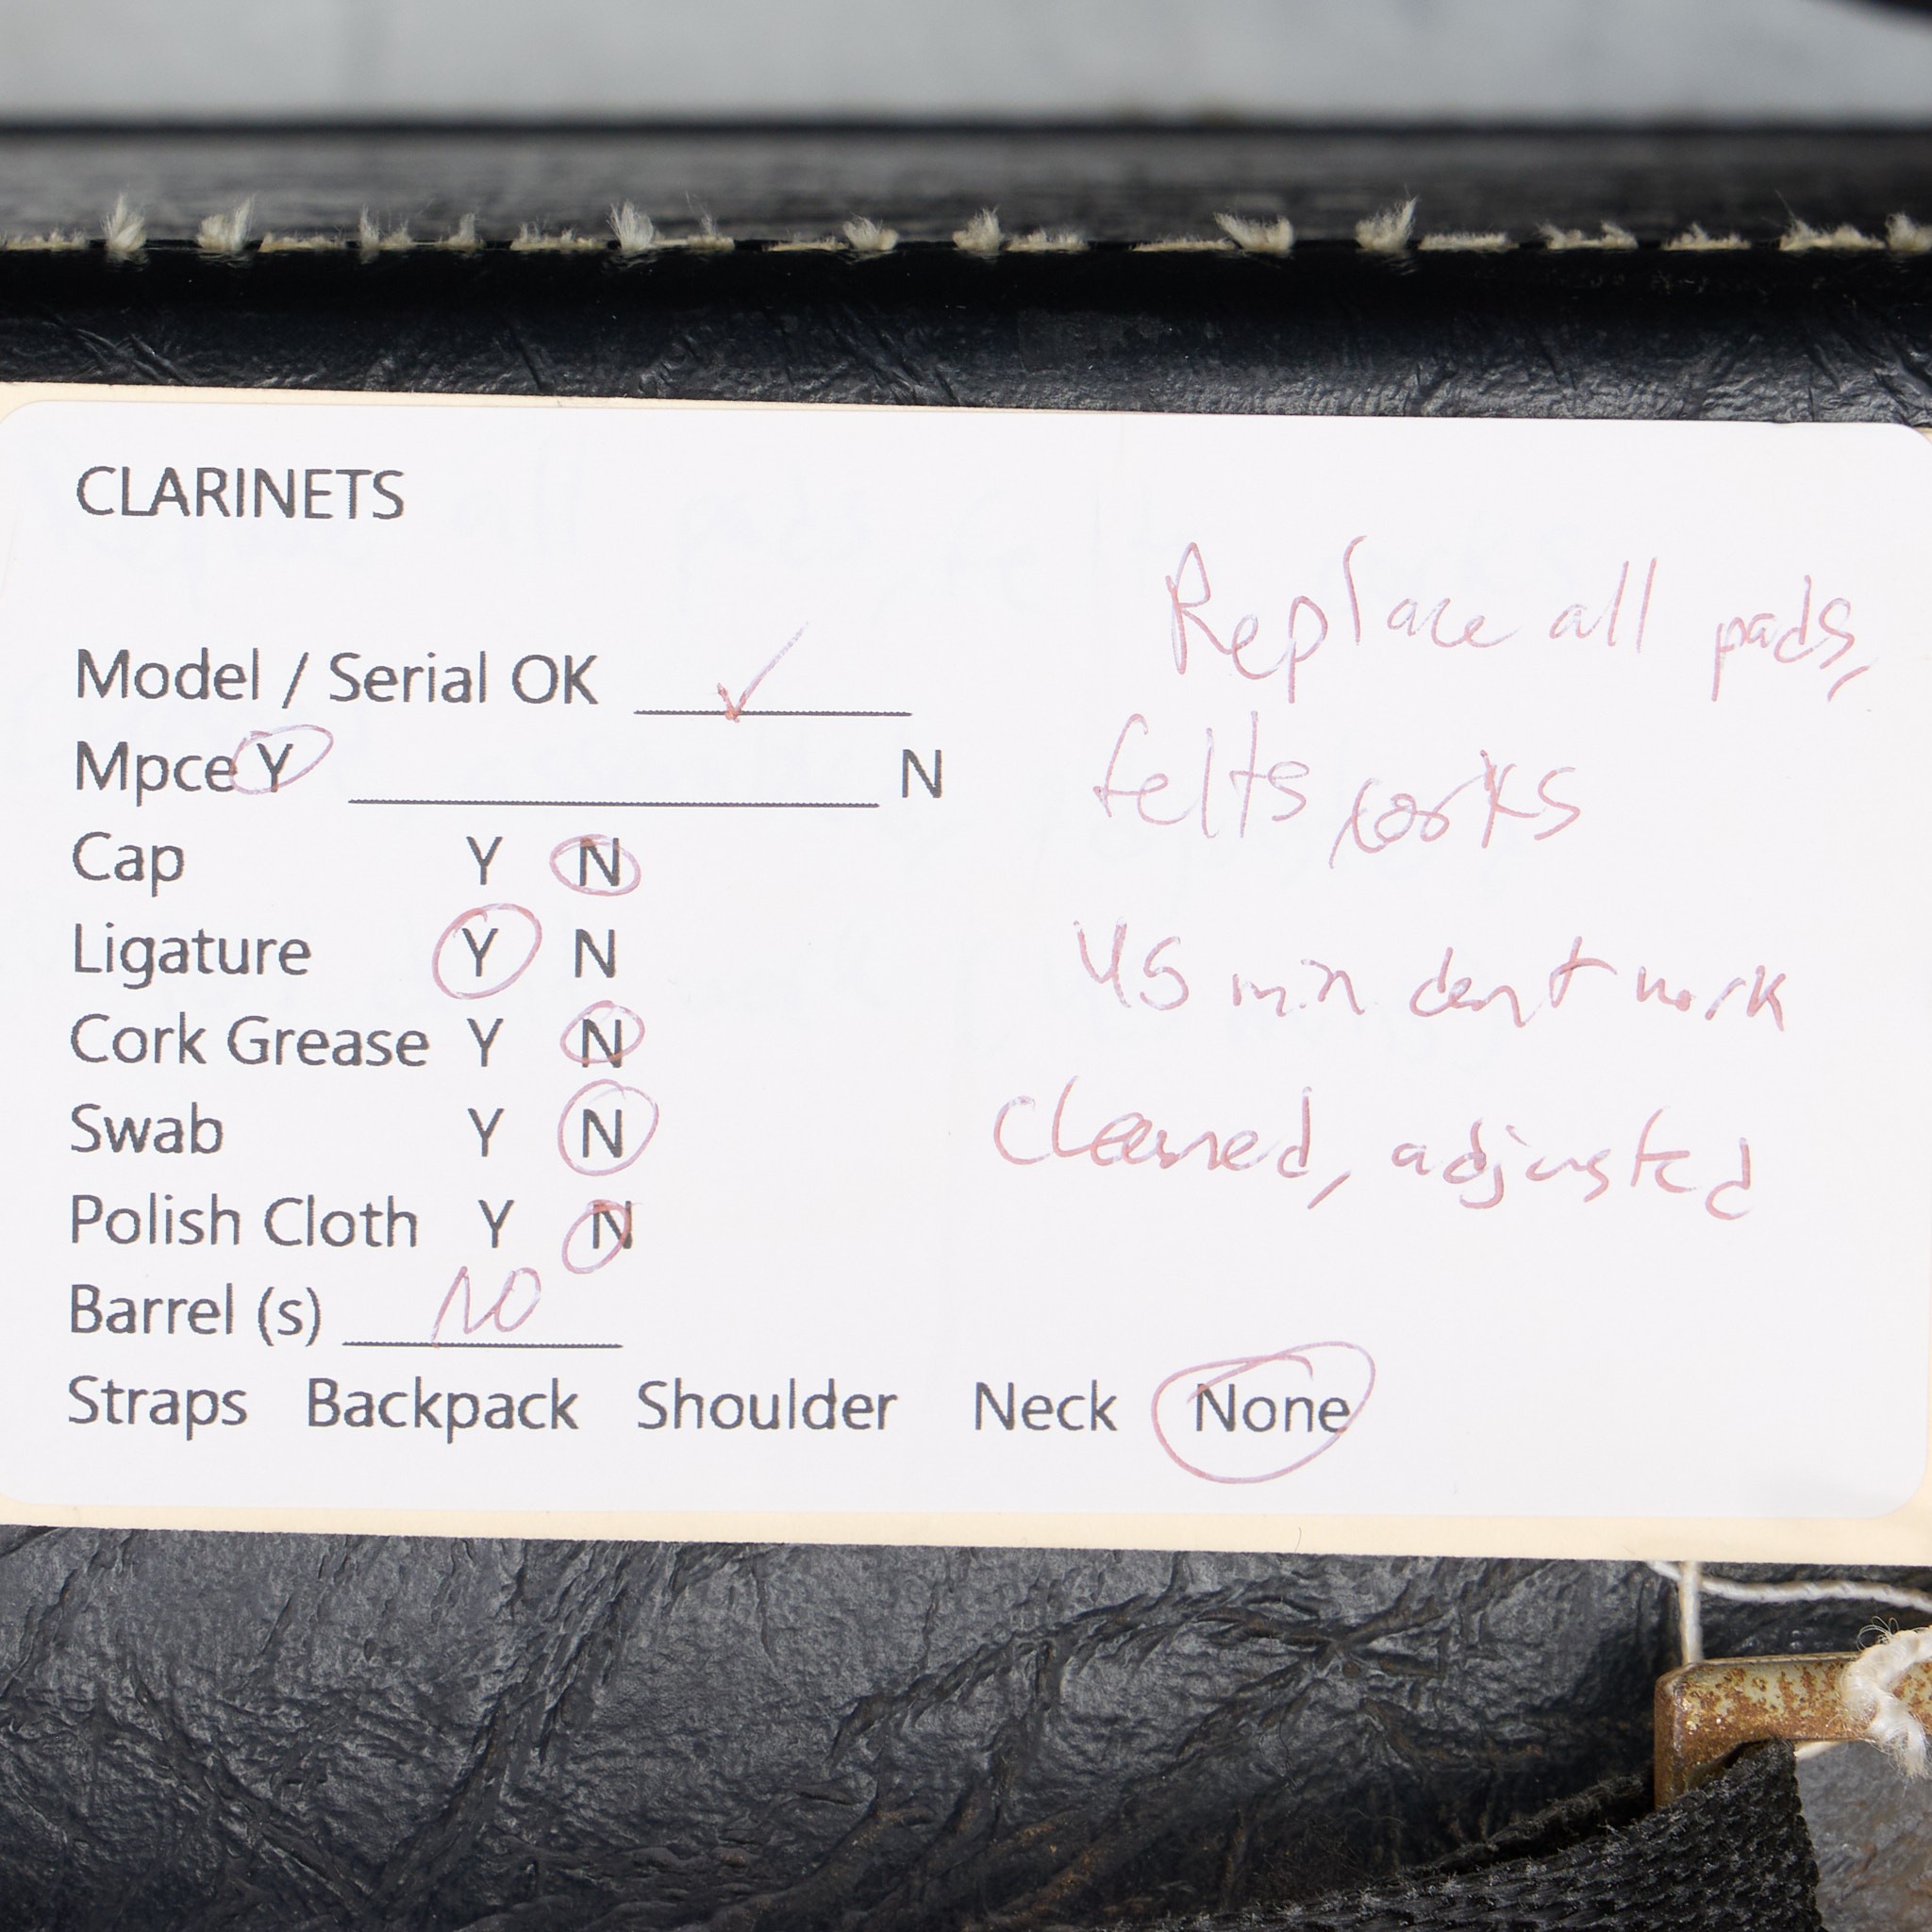 CLARINETS
Model / Serial OK ✓
Mpce Y N
Cap Y N
Ligature Y N
Cork Grease Y N
Swab Y N
Polish Cloth Y N
Barrel (s) NO
Straps Backpack Shoulder Neck None
Replace all pads,
felts, corks
45 min dent work
Cleaned, adjusted